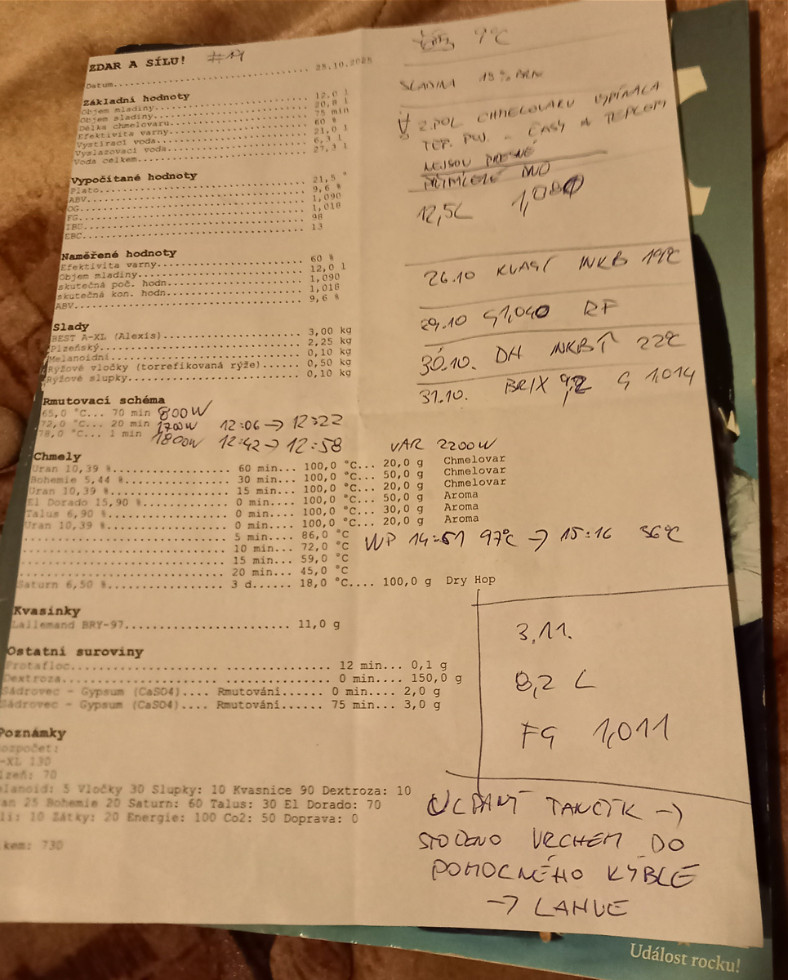 ZDAR A SÍLU! #
Datum 25.10.2025
Základní hodnoty
Objem mladiny 12,0 l
Objem sladiny 20,8 l
Délka chmelovaru 75 min
Efektivita varny 60 %
Vystírací voda 21,0 l
Vyslazovací voda 6,3 l
Voda celkem 27,3 l
Vypočítané hodnoty
Plato 21,5 °
ABV 9,6 %
OG 1,090
FG 1,018
IBU 98
EBC 13
Naměřené hodnoty
Efektivita varny 60 %
Objem mladiny 12,0 l
skutečná poč. hodn. 1,090
skutečná kon. hodn. 1,018
ABV 9,6 %
Slady
BEST A-XL (Alexis) 3,00 kg
Plzeňský 2,25 kg
Melanoidní 0,10 kg
Rýžové vločky (torrefikovaná rýže) 0,50 kg
Rýžové slupky 0,10 kg
Rmutovací schéma
65,0 °C... 70 min 800W
72,0 °C... 20 min 1700W 12:06 → 12:22
78,0 °C... 1 min 1800W 12:42 → 12:58
Chmely
Uran 10,39 % 60 min... 100,0 °C... 20,0 g Chmelovar
Bohemie 5,44 % 30 min... 100,0 °C... 50,0 g Chmelovar
Uran 10,39 % 15 min... 100,0 °C... 20,0 g Chmelovar
El Dorado 15,90 % 0 min... 100,0 °C... 50,0 g Aroma
Talus 6,90 % 0 min... 100,0 °C... 30,0 g Aroma
Uran 10,39 % 0 min... 100,0 °C... 20,0 g Aroma
5 min... 86,0 °C
10 min... 72,0 °C
15 min... 59,0 °C
20 min... 45,0 °C
Saturn 6,50 % 3 d... 18,0 °C.... 100,0 g Dry Hop
Kvasinky
Lallemand BRY-97 11,0 g
Ostatní suroviny
Protafloc 12 min... 0,1 g
Dextroza 0 min... 150,0 g
Sádrovec - Gypsum (CaSO4).... Rmutování 0 min.... 2,0 g
Sádrovec - Gypsum (CaSO4).... Rmutování 75 min... 3,0 g
Poznámky
ozpočet:
-XL 130
zeň: 70
lanoid: 5 Vločky 30 Slupky: 10 Kvasnice 90 Dextroza: 10
an 25 Bohemie 20 Saturn: 60 Talus: 30 El Dorado: 70
li: 10 Zátky: 20 Energie: 100 Co2: 50 Doprava: 0
kem: 730
9°C
SLADINA 15%
! 2.POL CHMELOVARU VYPÍNALA
TEP. POJ. - ČASY A TEPLOTY
NEJSOU PŘESNÉ
12,5L 1,080
26.10 KVASÍ INKB 19°C
29.10 G1,040 RF
30.10. DH INKBT 22°C
31.10. BRIX 9,2 G 1,014
VAR 2200W
WP 14:51 97°C → 15:16 36°C
3.11.
8,2 L
FG 1,011
UCPANÝ TANČÍK →
STOČENO VRCHEM DO
POMOCNÉHO KÝBLE
→ LAHVE
Událost rocku!